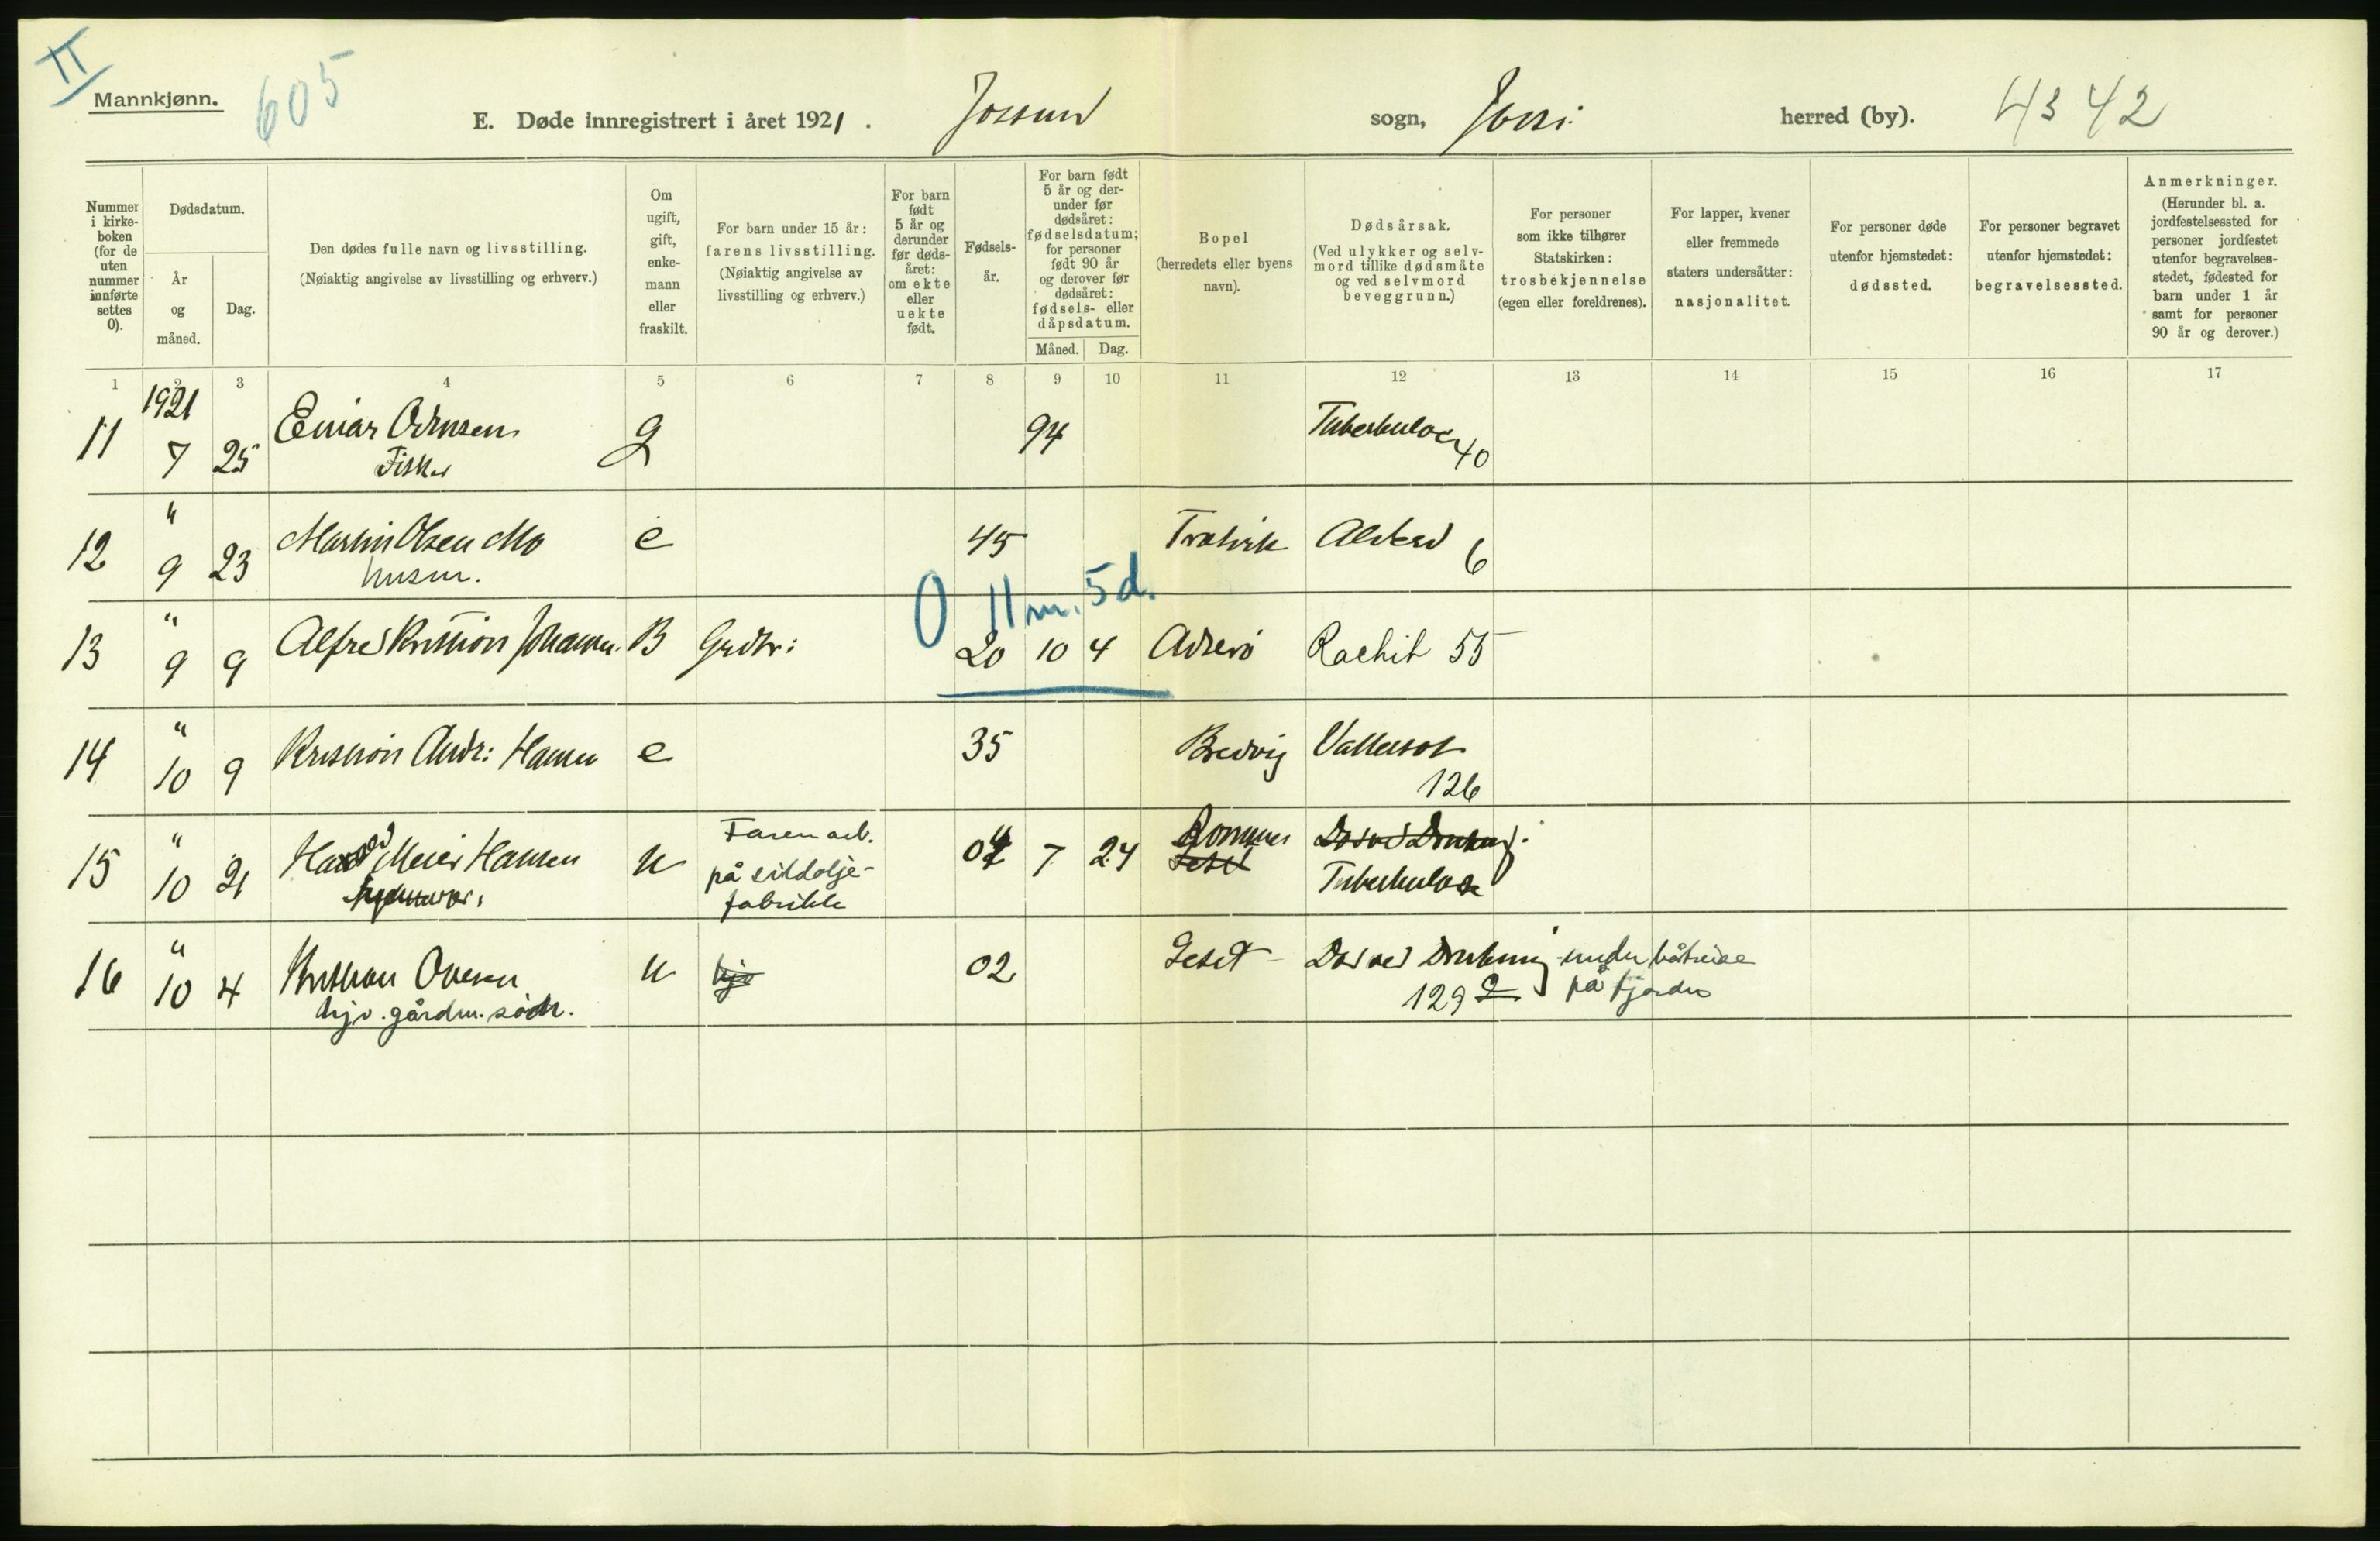 II
Mannkjønn.
605
E. Døde innregistrert i året 1921. Jossund sogn, herred (by). 4342
Nummer i kirke-boken (for de uten nummer innførte settes 0).
Dødsdatum.
År og måned.
Dag.
Den dødes fulle navn og livsstilling.
(Nøiaktig angivelse av livsstilling og erhverv.)
Om ugift, gift, enke-mann eller fraskilt.
For barn under 15 år: farens livsstilling.
(Nøiaktig angivelse av livsstilling og erhverv.)
For barn født 5 år og derunder før døds-året: om ekte eller uekte født.
Fødsels-år.
For barn født 5 år og der-under før dødsåret: fødselsdatum; for personer født 90 år og derover før dødsåret: fødsels- eller dåpsdatum.
Måned. Dag.
Bopel
(herredets eller byens navn).
Dødsårsak.
(Ved ulykker og selv-mord tillike dødsmåte og ved selvmord beveggrunn.)
For personer som ikke tilhører Statskirken: trosbekjennelse (egen eller foreldrenes).
For lapper, kvener eller fremmede staters undersåtter: nasjonalitet.
For personer døde utenfor hjemstedet: dødssted.
For personer begravet utenfor hjemstedet: begravelsessted.
Anmerkninger.
(Herunder bl. a. jordfestelsessted for personer jordfestet utenfor begravelses-stedet, fødested for barn under 1 år samt for personer 90 år og derover.)
1 2 3 4 5 6 7 8 9 10 11 12 13 14 15 16 17
1921
11 7 25 Einar g 94 Tuberkulose 40
Fisker
12 " 9 23 Martin Olsen Mo e 45 Alderd 6
husm.
0 11 m. 5 d.
13 " 9 9 Alfred Kristian Johansen B Grdbr: 20 10 4 Rachit 55
14 " 10 9 Kristian Andr: Hansen e 35 Bredvig Vattersot
126
15 " 10 21 Harald Meier Hansen u Faren arb. på sildolje-fabrikk 04 7 24 Død ved Drukning.
Tuberkulose
16 " 10 4 Kristian Ovesen u hjv 02 Seset Død ved Drukning under båtreise
hjv. gårdm. sødn. 129 2 på fjorden